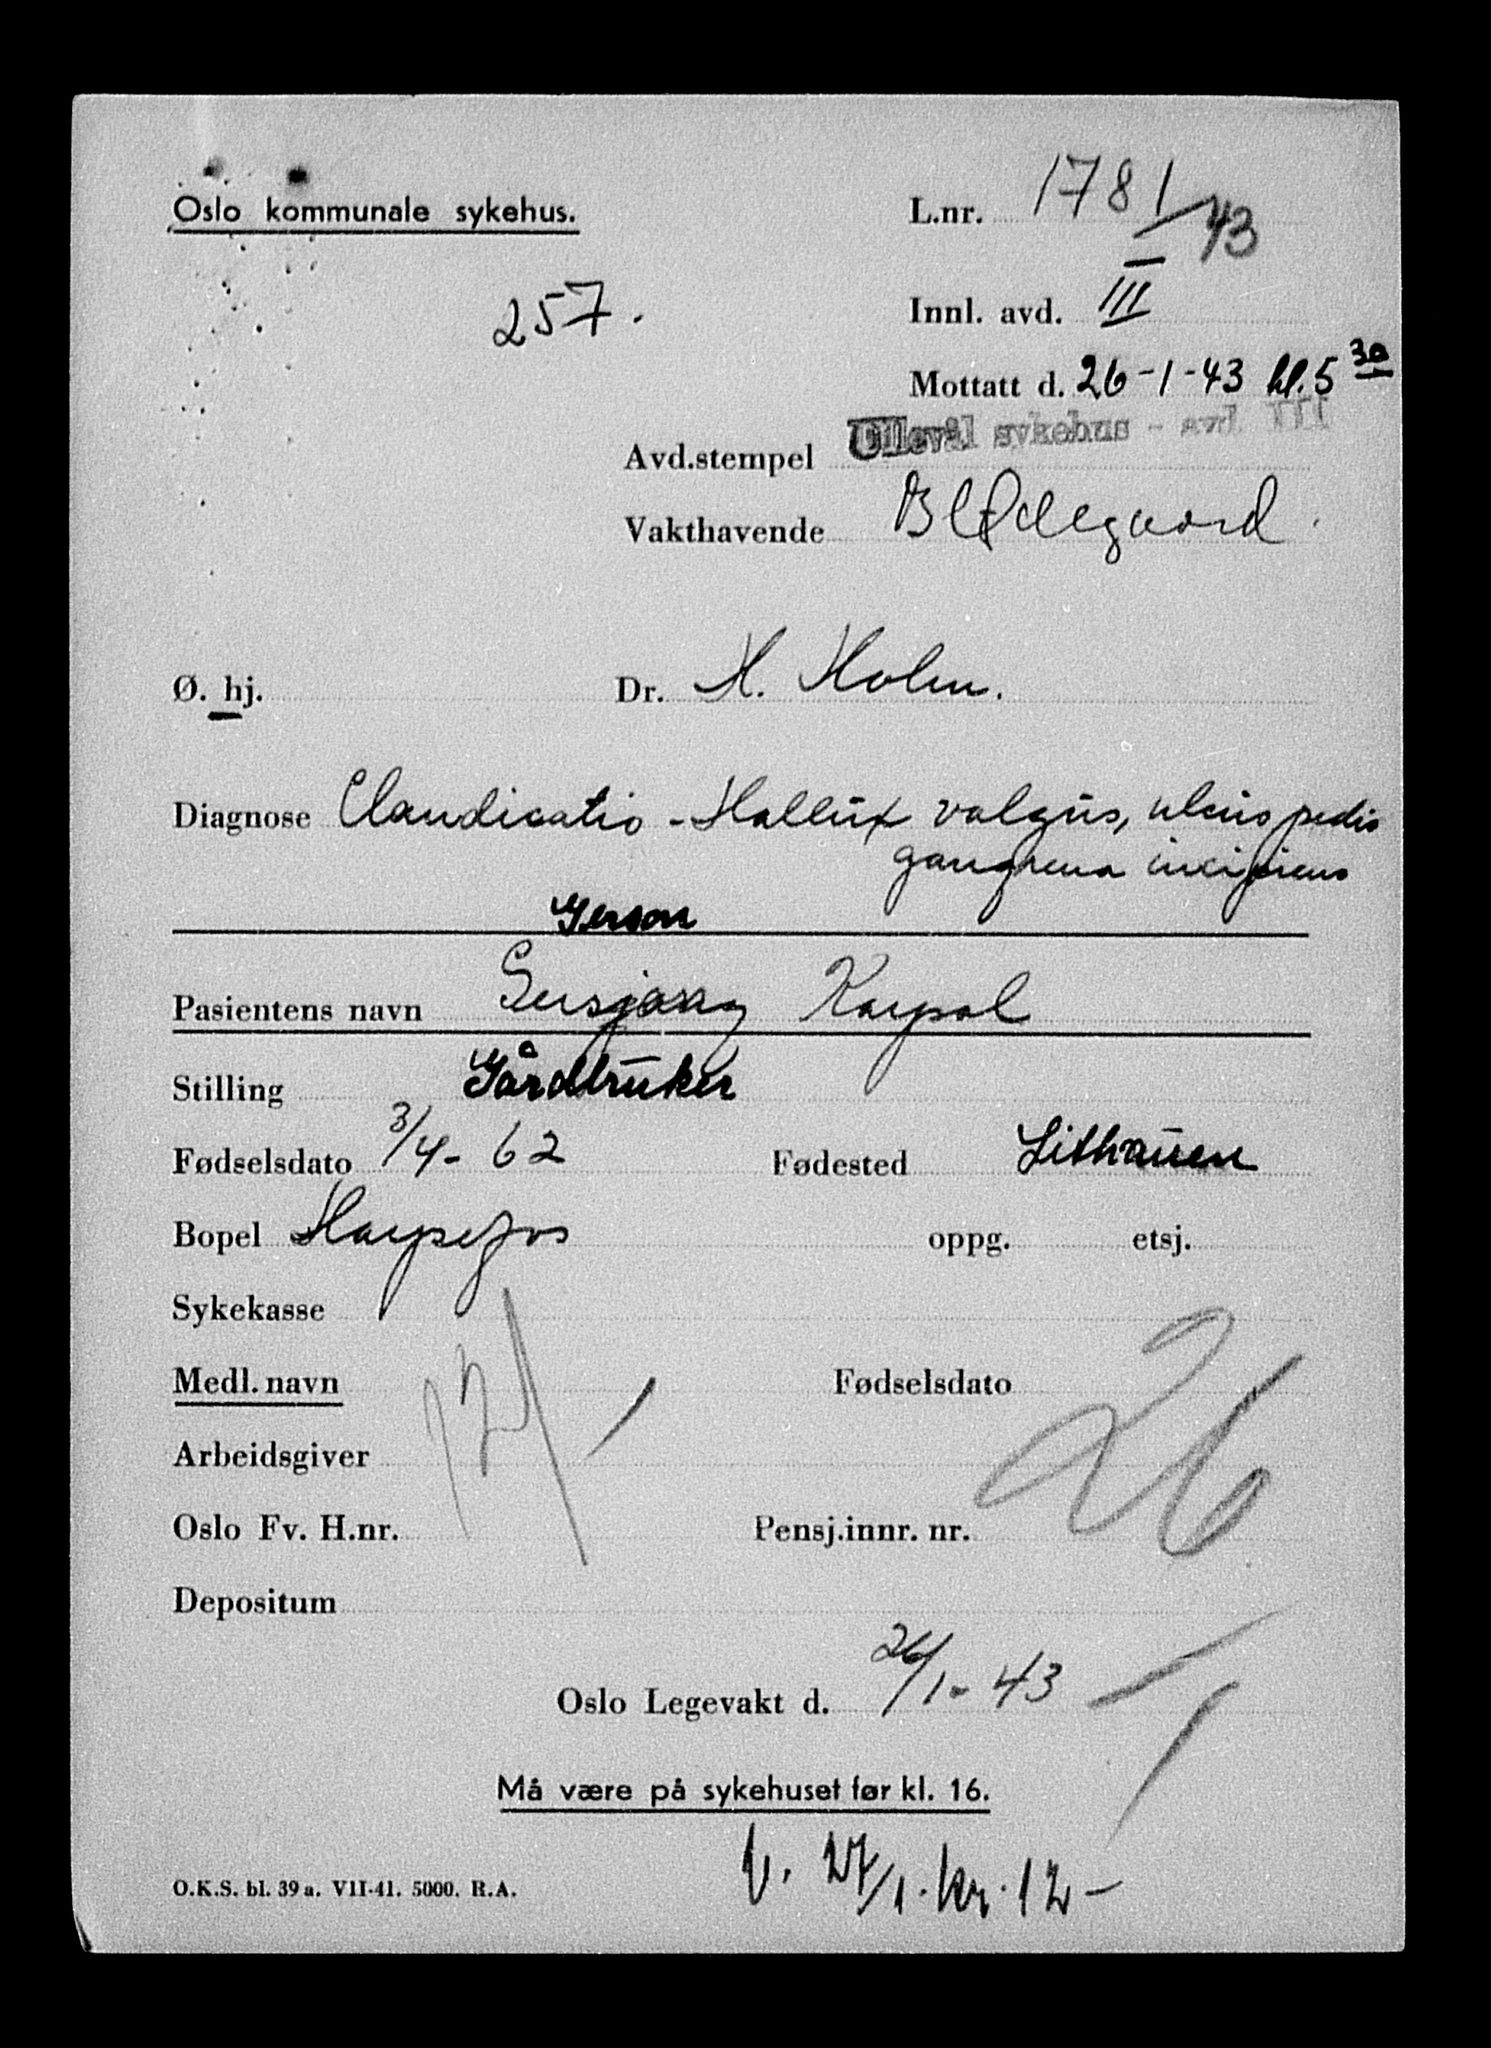 Oslo kommunale sykehus.
L.nr. 1781/43
257.
Innl. avd. III
Mottatt d. 26-1-43 kl. 5 30
Avd.stempel Ullevål sykehus - avd. III
Vakthavende B Ødegaard.
Ø. hj. Dr. H. Holm.
Diagnose Claudicatio - Hallux valgus, ulcus pedis
gangrena incipiens
Gerson
Pasientens navn Karpol
Stilling Gårdbruker
Fødselsdato 3/4- 62 Fødested Lithauen
Bopel Harpefos oppg. etsj.
Sykekasse
Medl. navn Fødselsdato
26
Arbeidsgiver
Oslo Fv. H.nr. Pensj.innr. nr.
Depositum
Oslo Legevakt d. 26/1- 43
Må være på sykehuset før kl. 16.
27/1. kr. 12-
O.K.S. bl. 39 a. VII-41. 5000. R.A.